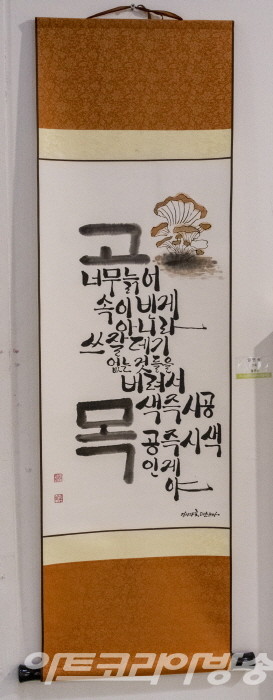 고
너무 늙어
속이 빈 게
아니라
쓰잘데기
없는 것들을
버려서
목
색즉시공
공즉시색
인 게야
아트코리아방송